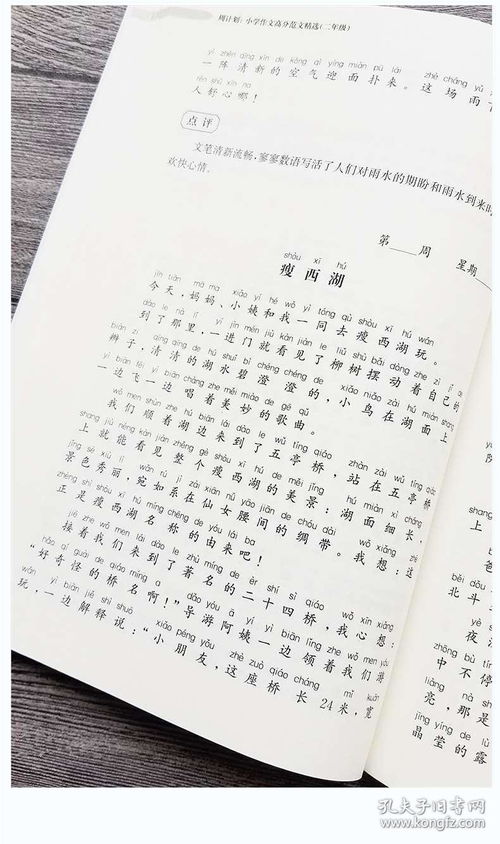 周计划：小学作文高分范文精选（二年级）
yí zhèn qīng xīn de kōng qì yíng miàn pū lái zhè cháng yǔ
一阵清新的空气迎面扑来。这场雨
rén shū xīn na
人舒心哪！
点评
文笔清新流畅，寥寥数语写活了人们对雨水的期盼和雨水到来时
欢快心情。
第 周 星期
shòu xī hú
瘦西湖
jīn tiān mā ma xiǎo yí hé wǒ yì tóng qù shòu xī hú wán
今天，妈妈、小姨和我一同去瘦西湖玩。
dào le nà lǐ yí jìn mén jiù kàn jiàn le liǔ shù bǎi dòng zhe zì jǐ
到了那里，一进门就看见了柳树摆动着自己的
biàn zi qīng qīng de hú shuǐ bì chéng chéng de xiǎo niǎo zài hú miàn shang
辫子，清清的湖水碧澄澄的，小鸟在湖面上
yì biān fēi yì biān chàng zhe měi miào de gē qǔ
一边飞一边唱着美妙的歌曲。
wǒ men shùn zhe hú biān lái dào le wǔ tíng qiáo zhàn zài wǔ tíng qiáo
我们顺着湖边来到了五亭桥，站在五亭桥
shang jiù néng kàn jiàn zhěng gè shòu xī hú de měi jǐng hú miàn xì cháng
上就能看见整个瘦西湖的美景：湖面细长，
jǐng sè xiù lì wǎn rú jì zài xiān nǚ yāo jiān de chóu dài wǒ xiǎng zhè
景色秀丽，宛如系在仙女腰间的绸带。我想：这
zhèng shì shòu xī hú míng chēng de yóu lái ba
正是瘦西湖名称的由来吧！
jiē zhe wǒ men lái dào le zhù míng de èr shí sì qiáo wǒ xīn xiǎng
接着我们来到了著名的二十四桥，我心想：
hǎo qí guài de qiáo míng a dǎo yóu ā yí yì biān lǐng zhe wǒ men yóu
“好奇怪的桥名啊！”导游阿姨一边领着我们游
wán yì biān jiě shì shuō xiǎo péng yǒu zhè zuò qiáo cháng mǐ kuān
玩，一边解释说：“小朋友，这座桥长24米，宽
上
阵
běi dǒu
北斗
yè
夜
zhōng bù tíng
中不停
liàng nà shì
亮，那是
jīng yíng de lù
晶莹的露
孔夫子旧书网
www.kongfz.com